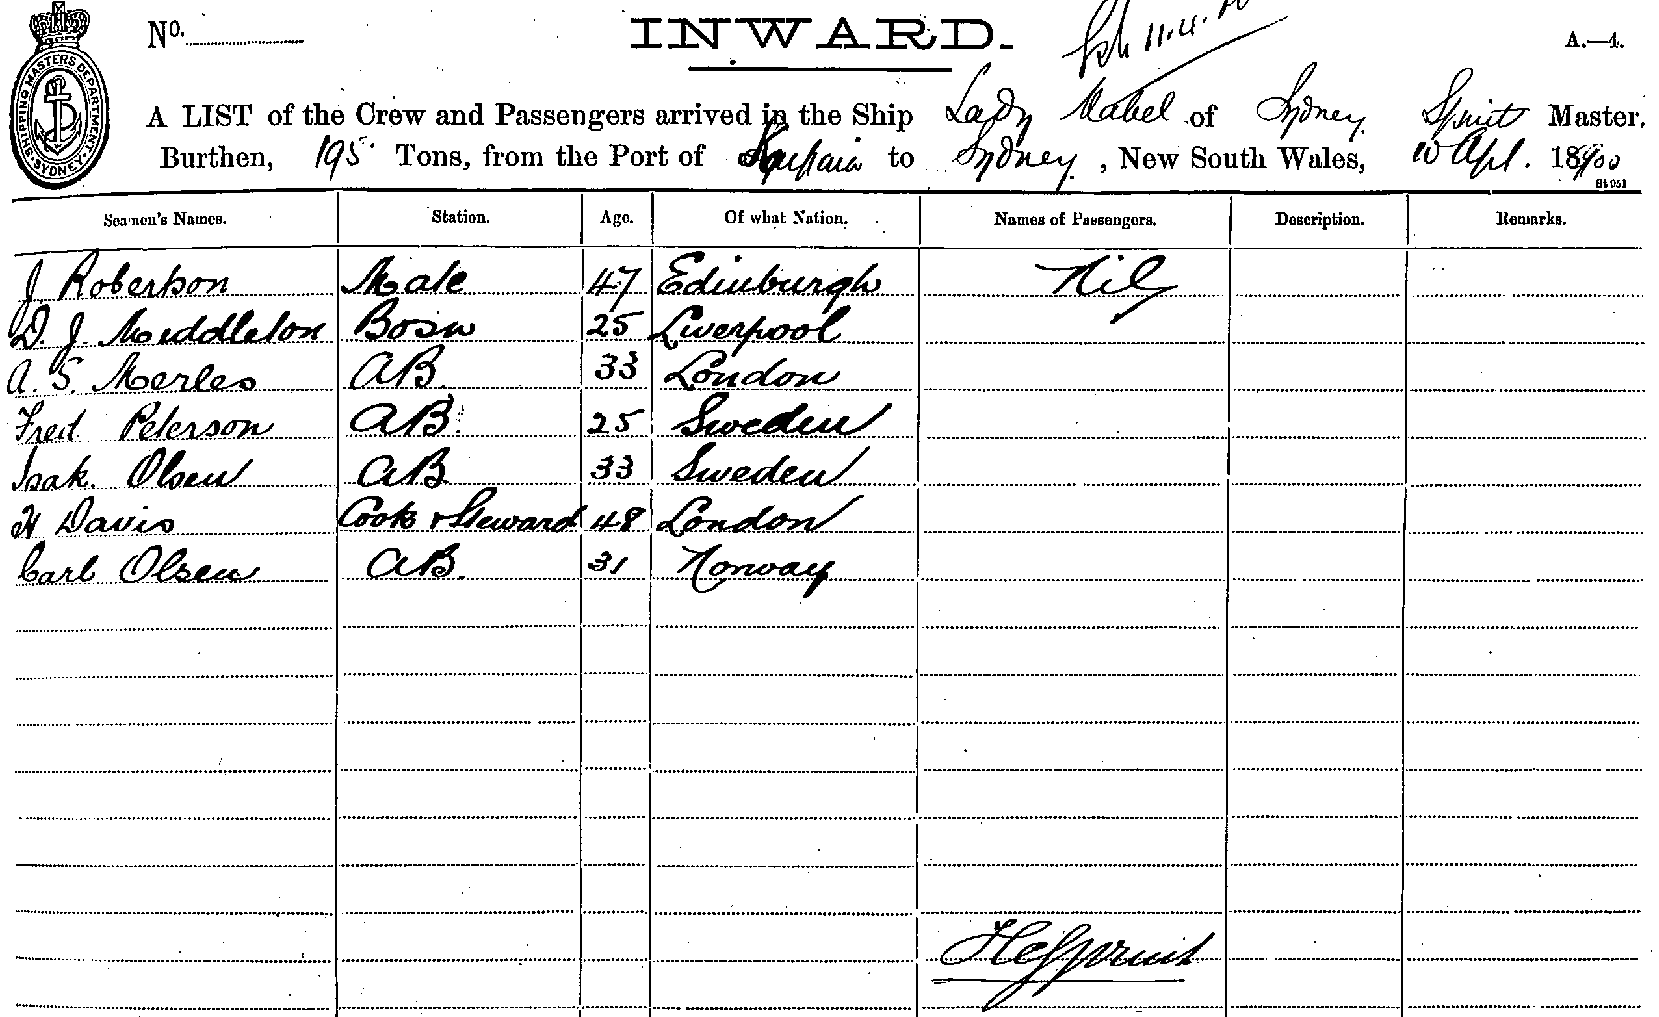 No.
INWARD.
A.—4.
SHIPPING MASTERS DEPARTMENT. SYDNEY.
A LIST of the Crew and Passengers arrived in the Ship Lady Mabel of Sydney Spruit Master.
Burthen, 195 Tons, from the Port of to Sydney, New South Wales, 10 Apl. 1900
Seamen's Names. Station. Age. Of what Nation. Names of Passengers. Description. Remarks.
J Robertson Mate 47 Edinburgh Nil
D. J. Middleton Bosn 25 Liverpool
A. S. Merles AB. 33 London
Fred Peterson AB. 25 Sweden
Isak Olsen AB 33 Sweden
H Davis Cook & Steward 48 London
Carl Olsen AB. 31 Norway